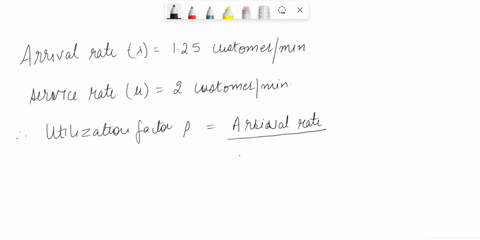 Arrival rate (λ) = 1.25 customer/min
service rate (μ) = 2 customer/min.
∴ Utilization factor ρ = Arrival rate